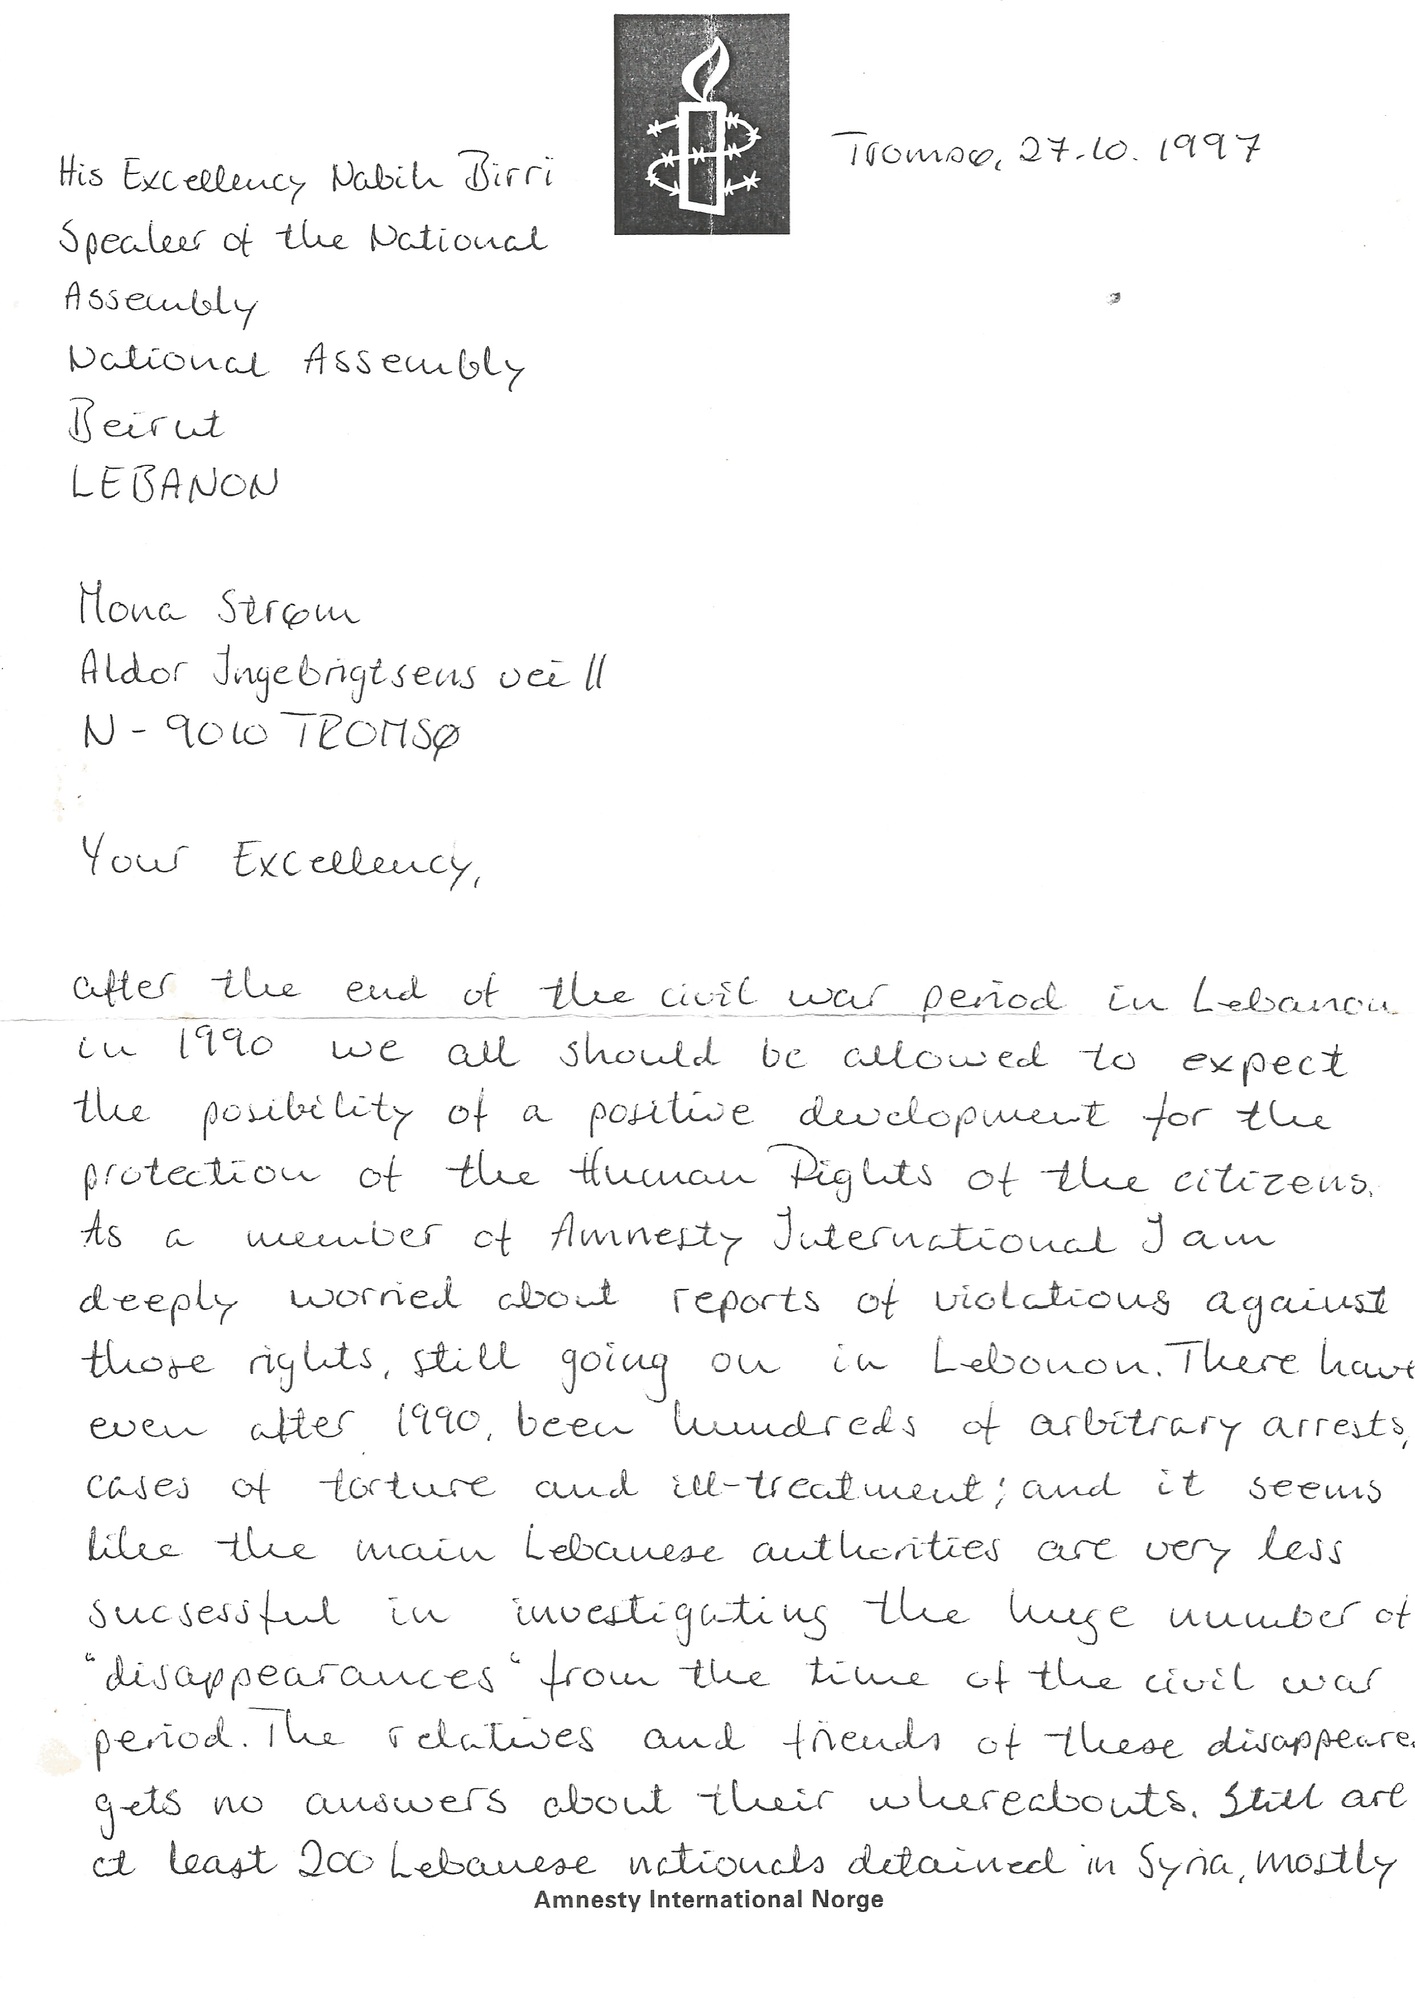 Tromsø, 27.10. 1997
His Excellency Nabih Birri
Speaker of the National
Assembly
National Assembly
Beirut
LEBANON
Mona Strøm
Aldor Ingebrigtsens vei 11
N - 9010 TROMSØ
Your Excellency,
after the end of the civil war period in Lebanon
in 1990 we all should be allowed to expect
the posibility of a positive development for the
protection of the Human Rights of the citizens.
As a member of Amnesty International I am
deeply worried about reports of violations against
those rights, still going on in Lebonon. There have
even after 1990, been hundreds of arbitrary arrests,
cases of torture and ill-treatment; and it seems
like the main Lebanese authorities are very less
sucsessful in investigating the huge number of
"disappearances" from the time of the civil war
period. The relatives and friends of these disappeare
gets no answers about their whereabouts. Still are
at least 200 Lebanese nationals detained in Syria, mostly
Amnesty International Norge